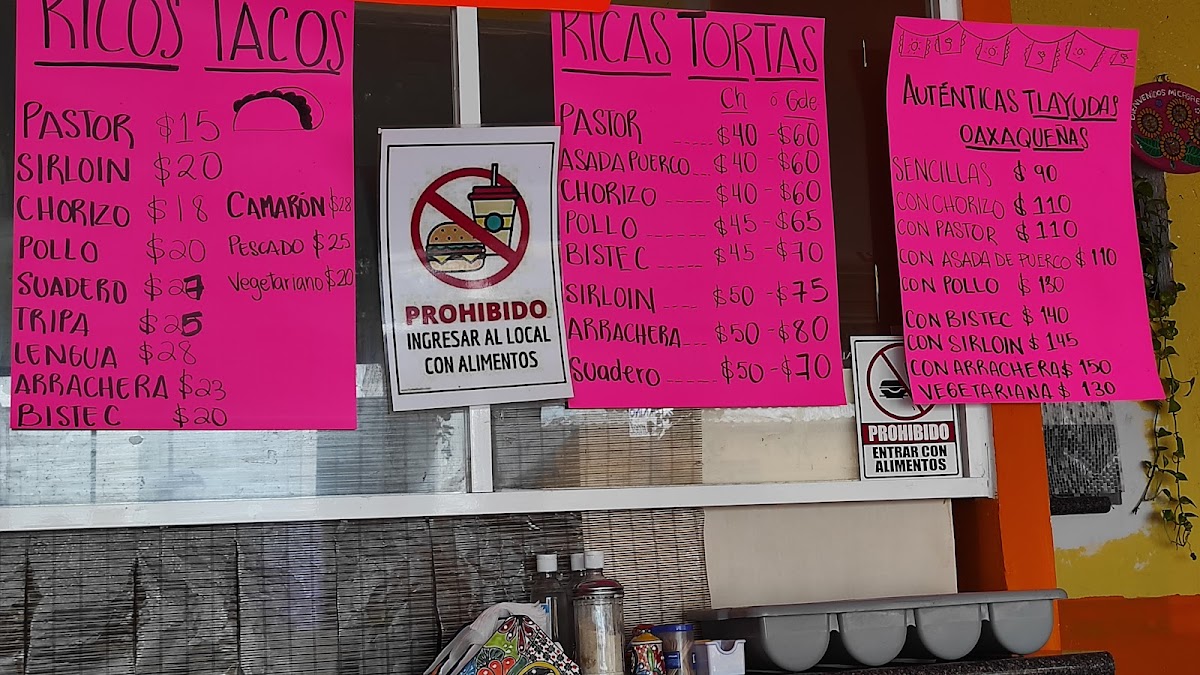 RICOS TACOS
PASTOR $15
SIRLOIN $20
CHORIZO $18
POLLO $20
SUADERO $27
TRIPA $25
LENGUA $28
ARRACHERA $23
BISTEC $20
CAMARÓN $28
PESCADO $25
Vegetariano $20
PROHIBIDO
INGRESAR AL LOCAL
CON ALIMENTOS
RICAS TORTAS
Ch ó Gde
PASTOR ----- $40 - $60
ASADA PUERCO -- $40 - $60
CHORIZO ----- $40 - $60
POLLO ----- $45 - $65
BISTEC ---- $45 - $70
SIRLOIN ---- $50 - $75
ARRACHERA -- $50 - $80
Suadero ---- $50 - $70
PROHIBIDO
ENTRAR CON
ALIMENTOS
AUTÉNTICAS TLAYUDAS
OAXAQUEÑAS
SENCILLAS $90
CON CHORIZO $110
CON PASTOR $110
CON ASADA DE PUERCO $110
CON POLLO $130
CON BISTEC $140
CON SIRLOIN $145
CON ARRACHERA $150
VEGETARIANA $130